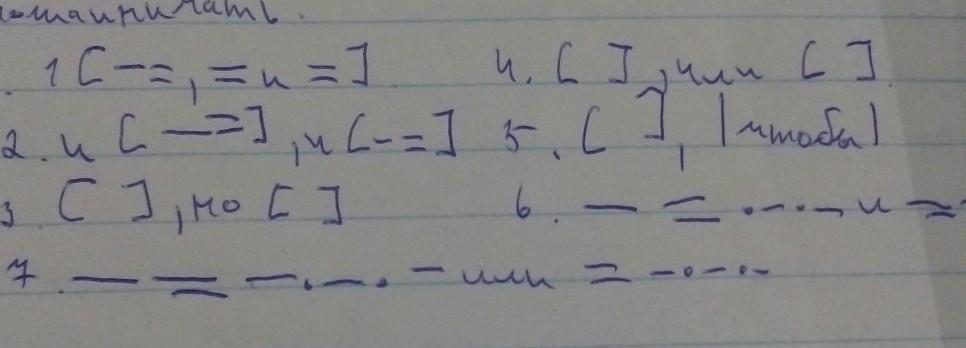 1 [— =, = и =]. 4. [ ], или [ ].
2. и [— =], и [— =] 5. [ ], |чтобы|
3 [ ], но [ ] 6. — = .-.-. и =
7. — = -.-.- или = -.-.-